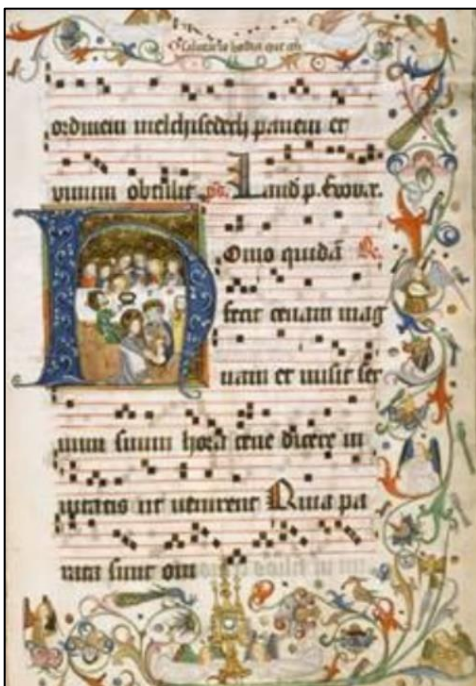 O salutaris hostia que celi
ordinem melchisedech panem et
vinum obtulit ps. Laud p. Evovae.
Homo quidā R.
fecit cenam mag
nam et misit ser
vum suum hora cene dicere in
vitatis ut venirent Quia pa
rata sunt om